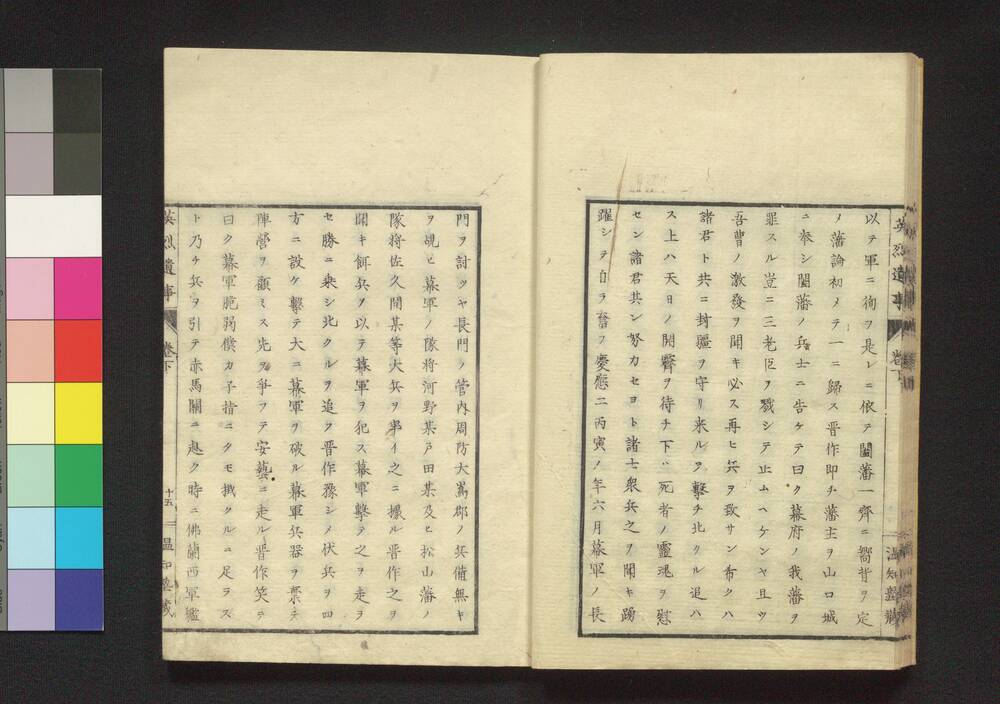 英烈遺事
卷下
温知塾蔵
以テ軍ニ徇フ是レニ依テ闔藩一齊ニ嚮背ヲ定
ノ藩論初メテ一ニ歸ス晋作即チ藩主ヲ山口城
ニ奉シ闔藩ノ兵士ニ告ケテ曰ク幕府ノ我藩ヲ
罪スル豈ニ三老臣ヲ戮シテ止ムヘケンヤ且ツ
吾曹ノ激發ヲ聞キ必ス再ヒ兵ヲ致サン希クハ
諸君ト共ニ封疆ヲ守リ来ルヲ撃チ北クル追ハ
ス上ハ天日ノ開翳ヲ待チ下ハ死者ノ靈魂ヲ慰
セン諸君共ン努力セヨト諸士衆兵之ヲ聞キ踴
躍シテ自ラ奮フ慶應二丙寅ノ年六月幕軍ノ長
門ヲ討ツヤ長門ノ管内周防大嶌郡ノ兵備無キ
ヲ覘ヒ幕軍ノ隊将河野某戸田某及ヒ松山藩ノ
隊将佐久間某等大兵ヲ率イ之ニ據ル晋作之ヲ
聞キ餌兵ヲ以テ幕軍ヲ犯ス幕軍撃テ之ヲ走ヲ
セ勝ニ乗シ北クルヲ追ク晋作豫シメ伏兵ヲ四
方ニ設ケ撃テ大ニ幕軍ヲ破ル幕軍兵器ヲ棄テ
陣營ヲ顧ミス先ヲ爭フテ安藝ニ走ル晋作笑テ
曰ク幕軍脆弱僕カ子指ニタモ撠クルニ足ラス
ト乃チ兵ヲ引テ赤馬關ニ赴ク時ニ佛蘭西軍艦
英烈遺事
卷下
十五
温知塾蔵